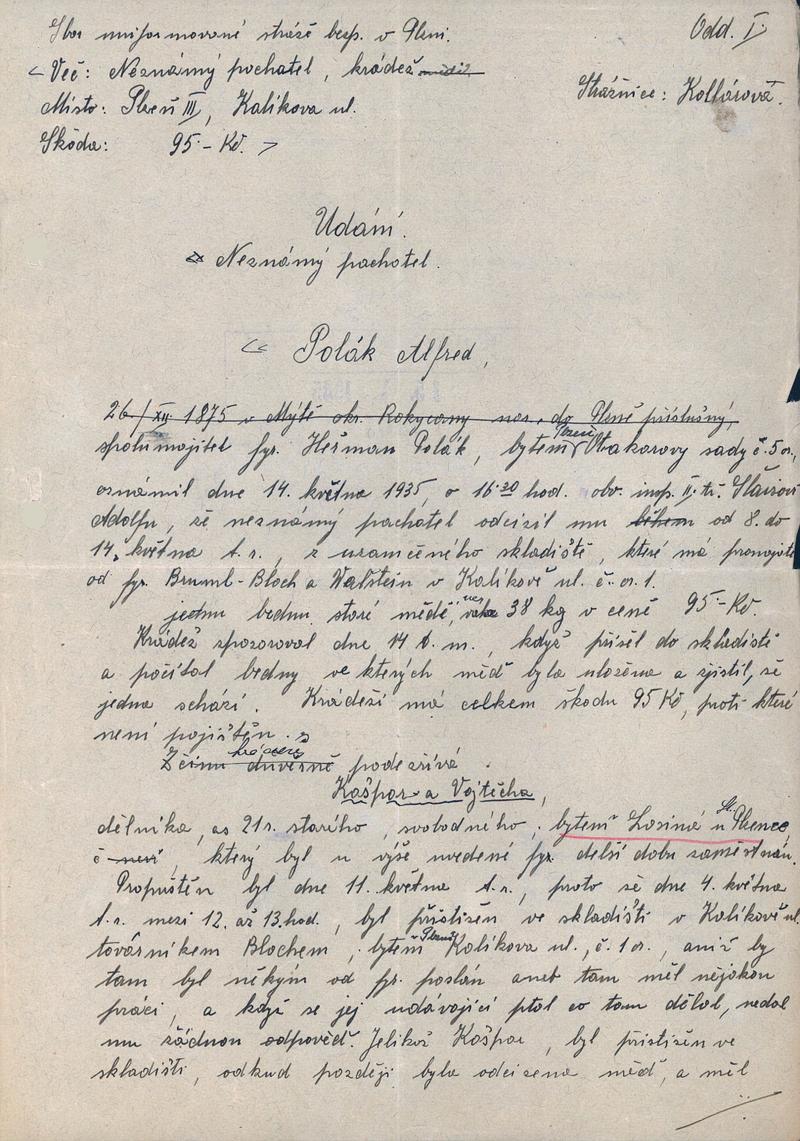 Sbor uniformované stráže bezp. v Plzni.
Odd. I.
Věc: Neznámý pachatel, krádež
Strážnice: Kollárova.
Místo: Plzeň III, Kalikova ul.
Škoda: 95.- Kč.
Udání.
Neznámý pachatel.
Polák Alfred,
26./XII. 1875 v Mýtě okr. Rokycany nar., do Plzně příslušný,
spolumajitel fy. Heřman Polák, bytem Plzeň Otakarovy sady č. 5 or.,
oznámil dne 14. května 1935, o 16 20 hod. obv. insp. II. tř.
Adolfu, že neznámý pachatel odcizil mu během od 8. do
14. května t. r., z uzamčeného skladiště, které má pronajaté
od fy. Bruml-Bloch a Walstein v Kalikově ul. č. or. 1.
jednu bednu staré mědě, váha 38 kg v ceně 95.- Kč.
Krádež zpozoroval dne 14 t. m., když přišel do skladiště
a počítal bedny ve kterých měď byla uložena a zjistil, že
jedna schází. Krádeží má celkem škodu 95 Kč, proti které
není pojištěn.
Z činu krádeže důvěrně podezřívá
Kašpara Vojtěcha,
dělníka, as 21 r. starého, svobodného, bytem Losiná u St. Plzence,
č není, který byl u výše uvedené fy. delší dobu zaměstnán.
Propuštěn byl dne 11. května t. r., proto že dne 4. května
t. r. mezi 12. až 13. hod., byl přistižen ve skladišti v Kalikově ul.
továrníkem Blochem, bytem Plzeň Kalikova ul., č. 1 or., aniž by
tam byl někým od fy. poslán aneb tam měl nějakou
práci, a když se jej udávající ptal co tam dělal, nedal
mu žádnou odpověď. Jelikož Kašpar, byl přistižen ve
skladišti, odkud později byla odcizena měď, a měl